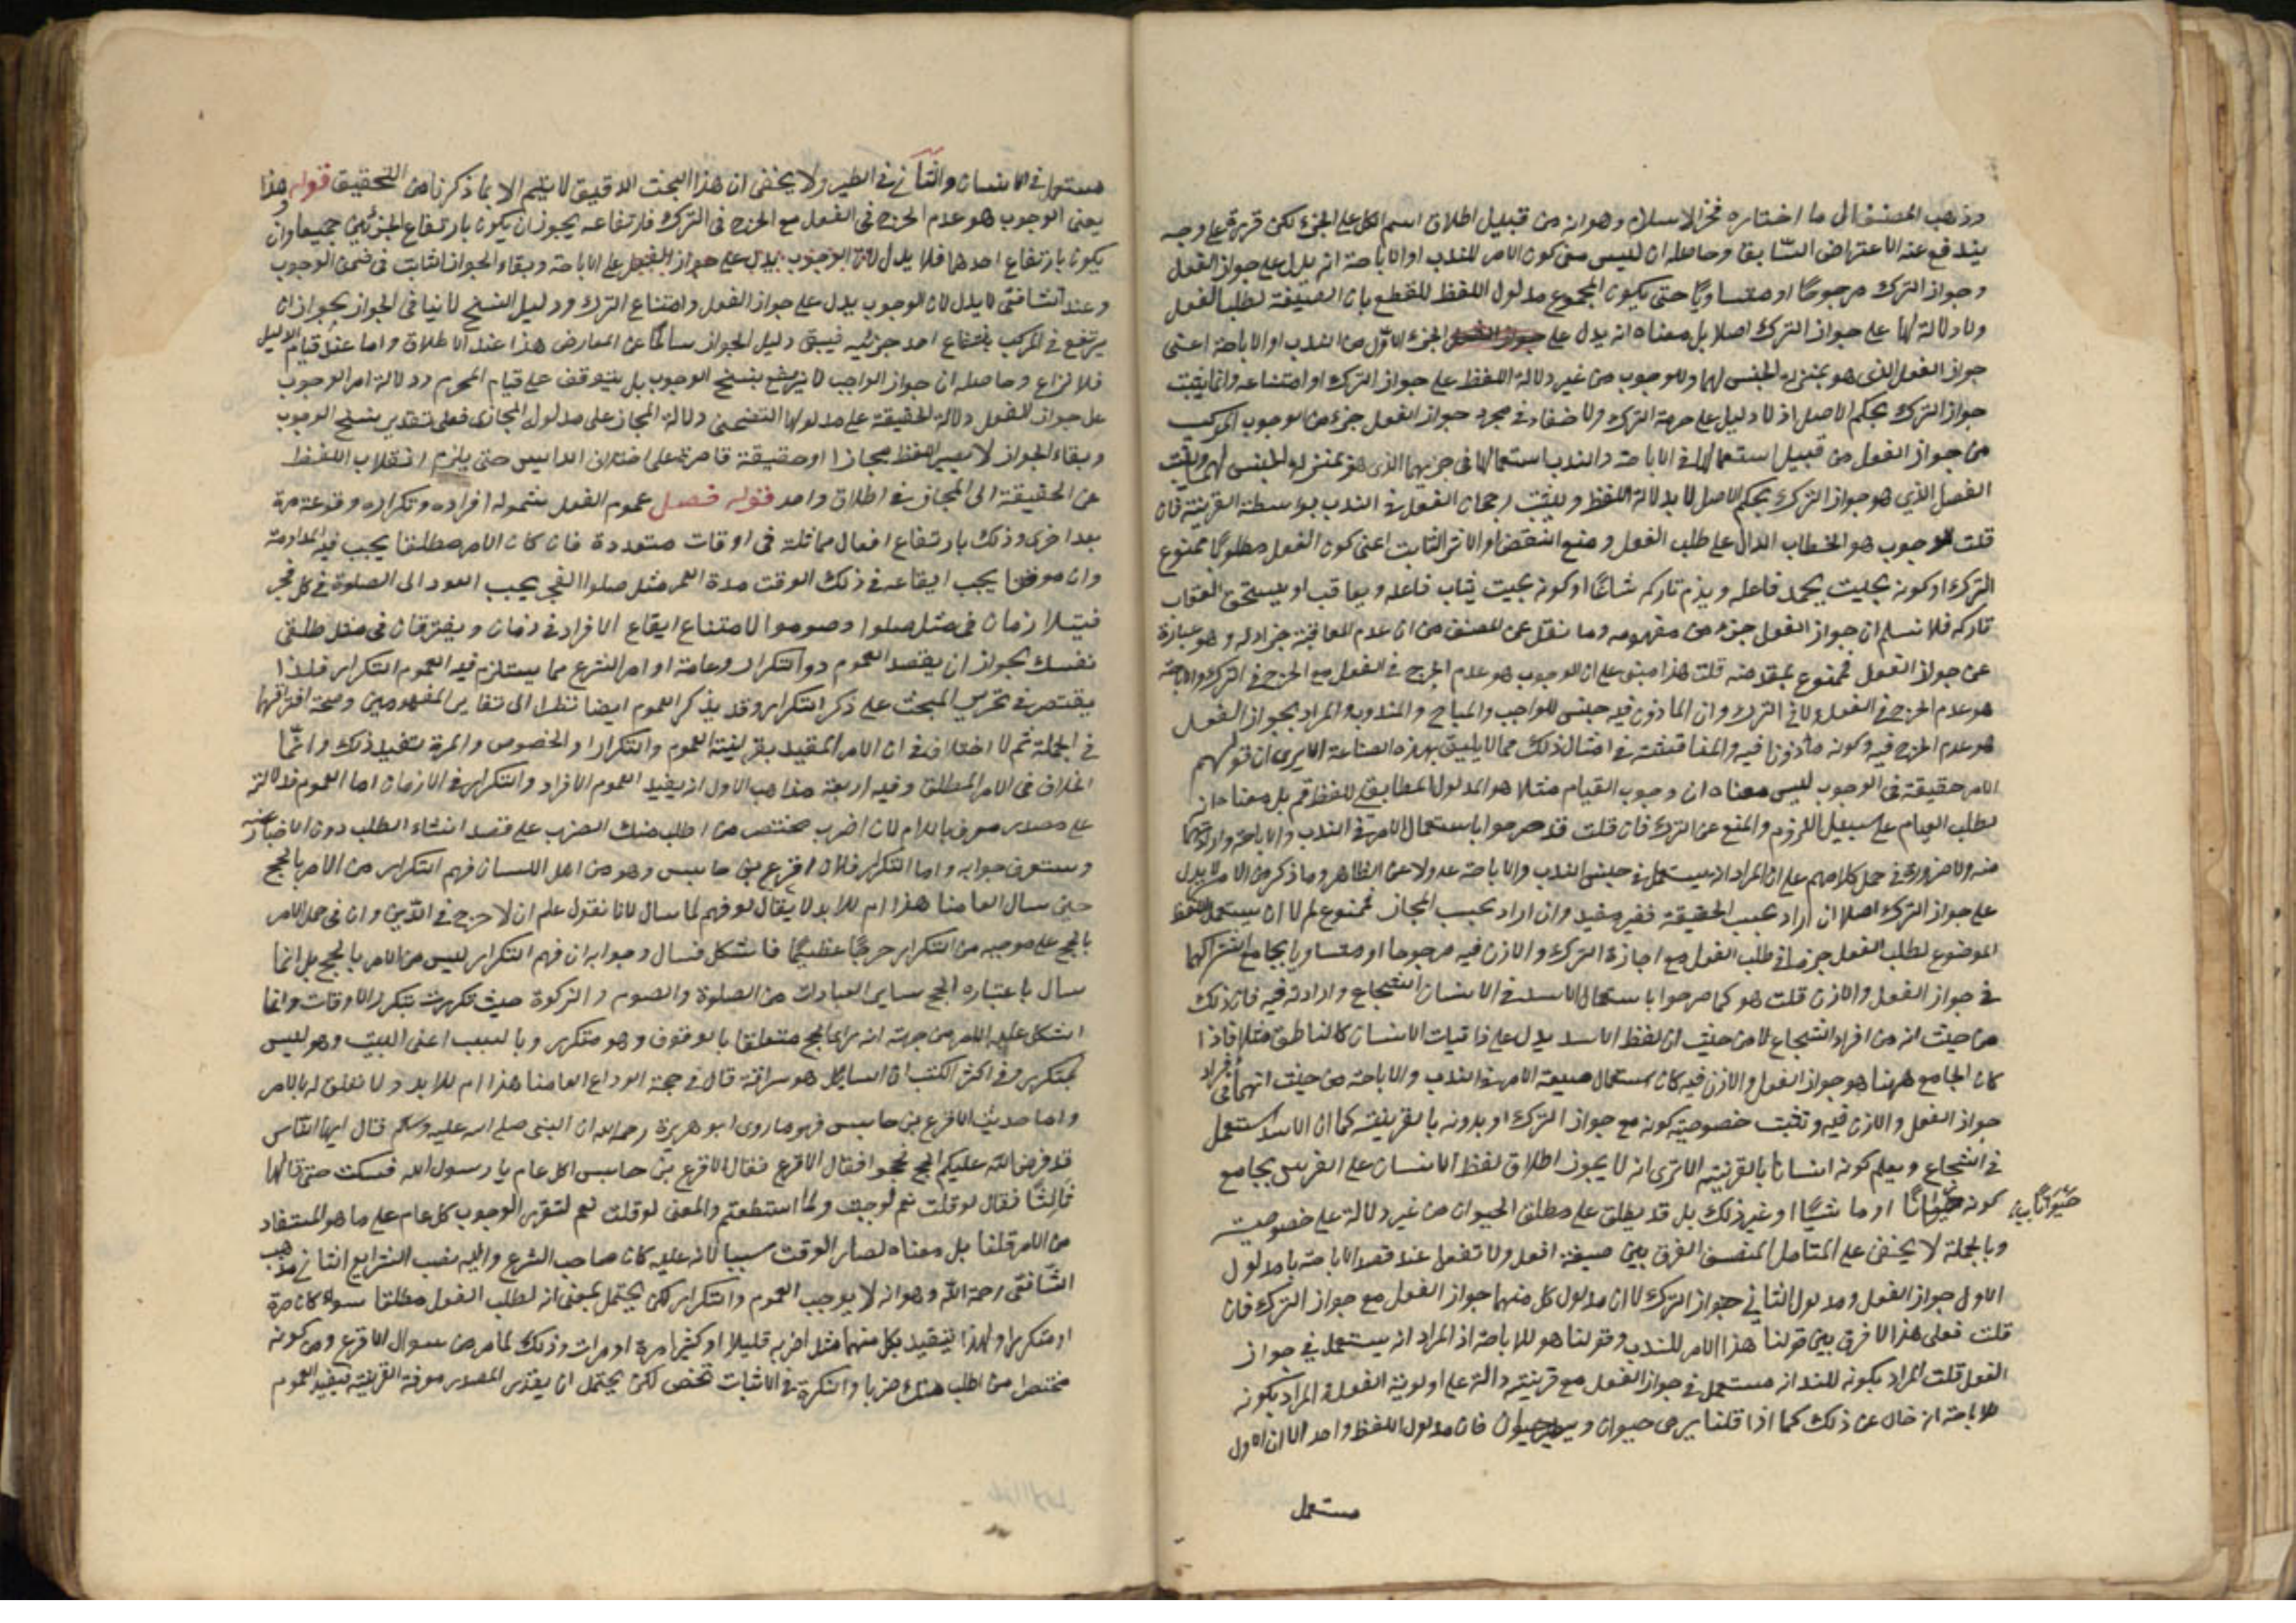 وذهب المصنف الى ما اختاره فخر الاسلام وهو انه من قبيل اطلاق اسم الكل على الجزء لكن قرره على وجه
يندفع عنه الاعتراض السابق وحاصله ان ليس معنى كون الامر للندب او الاباحة انه يدل على جواز الفعل
وجواز الترك مرجوحا او متساويا حتى يكون المجموع مدلول اللفظ للقطع بان الصيغة لطلب الفعل
ولا دلالة لها على جواز الترك اصلا بل معناه انه يدل على الجزء الاول من الندب او الاباحة اعنى
جواز الفعل الذى هو بمنزلة الجنس لهما وللوجوب من غير دلالة اللفظ على جواز الترك او امتناعه وانما يثبت
جواز الترك بحكم الاصل اذ لا دليل على حرمة الترك ولا خفاء فى مجرد جواز الفعل جزء من الوجوب المركب
من جواز الفعل من قبيل استعمالها فى الاباحة والندب استعمالها فى جزئهما الذى هو بمنزلة الجنس لهم ويثبت
الفصل الذي هو جواز الترك بحكم الاصل لا بدلالة اللفظ ويثبت رجحان الفعل فى الندب بواسطة القرينة فان
قلت الوجوب هو الخطاب الدال على طلب الفعل ومنع النقيض او الاثر الثابت اعنى كون الفعل مطلوبا ممنوع
الترك او كونه بحيث يحمد فاعله ويذم تاركه شرعا او كونه بحيث يثاب فاعله ويعاقب او يستحق العقاب
تاركه فلا نسلم ان جواز الفعل جزء من مفهومه وما نقل عن المصنف من ان عدم المعاقبة جزء له وهو عبارة
عن جواز الفعل فممنوع بمقدمته قلت هذا مبنى على ان الوجوب هو عدم الحرج فى الفعل مع الحرج فى الترك والاباحة
هو عدم الحرج فى الفعل ولا فى الترك وان المأذون فيه جنس للواجب والمباح والمندوب والمراد بجواز الفعل
هو عدم الحرج فيه وكونه مأذونا فيه والمناقشة فى امثال ذلك مما لا يليق بهذه الصناعة الا يرى ان قولهم
الامر حقيقة فى الوجوب ليس معناه ان وجوب القيام مثلا هو المدلول المطابقى للفظ قم بل معناه انه
لطلب القيام على سبيل اللزوم والمنع عن الترك فان قلت قد صرحوا باستعمال الامر فى الندب والاباحة وارادتهما
منه ولا ضرورة فى حمل كلامهم على ان المراد انه يستعمل فى جنس الندب والاباحة عدولا عن الظاهر وما ذكر من الامر لا يدل
على جواز الترك اصلا ان اراد بحسب الحقيقة فغير مفيد وان اراد بحسب المجاز فممنوع لم لا ان يستعمل اللفظ
الموضوع لطلب الفعل جزما فى طلب الفعل مع اجازة الترك والاذن فيه مرجوحا او متساويا بجامع اشتراكهما
فى جواز الفعل والاذن قلت هو كما صرحوا باستعمال الاسد فى الانسان الشجاع وارادته فيه فان ذلك
من حيث انه من افراد الشجاع لا من حيث ان لفظ الاسد يدل على ذاتيات الانسان كالناطق مثلا فاذا
كان الجامع ههنا هو جواز الفعل والاذن فيه كان استعمال صيغة الامر فى الندب والاباحة من حيث انهما من افراد
جواز الفعل والاذن فيه وتثبت خصوصية كونه مع جواز الترك او بدونه بالقرينة كما ان الاسد استعمل
فى الشجاع ويعلم كونه انسانا بالقرينة الا ترى انه لا يجوز اطلاق لفظ الانسان على الفرس بجامع
كونه حيوانا او ماشيا او غير ذلك بل قد يطلق على مطلق الحيوان من غير دلالة على خصوصيته
حيوانا
وبالجملة لا يخفى على المتامل المنصف الفرق بين صيغة افعل ولا تفعل عند قصد الاباحة بان مدلول
الاول جواز الفعل ومدلول الثانى جواز الترك لا ان مدلول كل منهما جواز الفعل مع جواز الترك فان
قلت فعلى هذا لا فرق بين قولنا هذا الامر للندب وقولنا هو للاباحة اذ المراد انه يستعمل فى جواز
الفعل قلت المراد بكونه للندب انه مستعمل فى جواز الفعل مع قرينة دالة على اولوية الفعل والمراد بكونه
للاباحة انه خال عن ذلك كما اذا قلنا يرمى حيوان ويطير حيوان فان مدلول اللفظ واحد الا ان الاول
مستعمل
مستعمل فى الانسان والثانى فى الطير ولا يخفى ان هذا البحث الدقيق لا يتم الا بما ذكرنا من التحقيق قوله هذا
يعنى الوجوب هو عدم الحرج فى الفعل مع الحرج فى الترك فارتفاعه يجوز ان يكون بارتفاع الجزئين جميعا وان
يكون بارتفاع احدهما فلا يدل لان الوجوب يدل على جواز الفعل على الاباحة وبقاء الجواز الثابت فى ضمن الوجوب
وعند الشافعى لا يدل لان الوجوب يدل على جواز الفعل وامتناع الترك ودليل النسخ لا ينافى الجواز بجواز ان
يرتفع فى المركب بارتفاع احد جزئيه فيبقى دليل الجواز سالما عن المعارض هذا عند الاطلاق واما عند قيام الدليل
فلا نزاع وحاصله ان جواز الواجب لا يرتفع بنسخ الوجوب بل يتوقف على قيام المحرم ودلالة امر الوجوب
على جواز الفعل دلالة الحقيقة على مدلولها التضمنى دلالة المجاز على مدلول المجازى فعلى تقدير نسخ الوجوب
وبقاء الجواز لا يصير اللفظ مجازا او حقيقة قاصرة على اختلاف الرايين حتى يلزم انقلاب اللفظ
عن الحقيقة الى المجاز فى اطلاق واحد قوله فصل عموم الفعل شموله افراده وتكراره وقوعه مرة
بعد اخرى وذلك بارتفاع افعال مماثلة فى اوقات متعددة فان كان الامر مطلقا يجب فيه المداومة
وان موقتا يجب ايقاعه فى ذلك الوقت مدة العمر مثل صلوا الفجر يجب العود الى الصلوة فى كل فجر
فيتلازمان فى مثل صلوا وصوموا لامتناع ايقاع الافراد فى زمان ويفترقان فى مثل طلقى
نفسك بجواز ان يقصد العموم دون التكرار وعامة اوامر الشرع مما يستلزم فيه العموم التكرار فلذا
يقتصر فى تحرير المبحث على ذكر التكرار وقد يذكر العموم ايضا نظرا الى تغاير المفهومين وصحة افتراقهما
فى الجملة ثم لا اختلاف فى ان الامر المقيد بقرينة العموم والتكرار او الخصوص والمرة يفيد ذلك وانما
الخلاف فى الامر المطلق وفيه اربعة مذاهب الاول انه يفيد العموم الافراد والتكرار فى الازمان اما العموم فدلالته
على مصدر معرف باللام لان اضرب مختصر من اطلب منك الضرب على قصد انشاء الطلب دون الاخبار عنه
وستعرف جوابه واما التكرار فلان اقرع بن حابس وهو من اهل اللسان فهم التكرار من الامر بالحج
حين سال العامنا هذا ام للابد لا يقال لو فهم لما سال لانا نقول علم ان لا حرج فى الدين وان فى حمل الامر
بالحج على موجبه من التكرار حرجا عظيما فاشكل فسال وجوابه ان فهم التكرار ليس من الامر بالحج بل انما
سال باعتباره الحج بساير العبادات من الصلوة والصوم والزكوة حيث تكررت بتكرر الاوقات وانما
اشكل عليه الامر من جهة انه راى الحج متعلقا بالوقوف وهو متكرر وبالسبب اعنى البيت وهو ليس
بمتكرر وفى اكثر الكتب ان السايل هو سراقة قال فى حجة الوداع العامنا هذا ام للابد ولا تعلق له بالامر
واما حديث الاقرع بن حابس فهو ما روى ابو هريرة رحمه الله ان النبى صلى الله عليه وسلم قال ايها الناس
قد فرض الله عليكم الحج فحجوا فقال الاقرع بن حابس اكل عام يا رسول الله فسكت حتى قالها
ثالثا فقال لو قلت نعم لوجبت ولما استطعتم والمعنى لو قلت نعم لتقرر الوجوب كل عام على ما هو المستفاد
من الامر قلنا بل معناه لصار الوقت سببا لانه عليه كان صاحب الشرع واليه نصب الشرايع الثانى مذهب
الشافعى رحمة الله وهو انه لا يوجب العموم والتكرار لكن يحتمل بمعنى انه لطلب الفعل مطلقا سواء كان مرة
او متكررا ولهذا يتقيد بكل منهما مثل اضربه قليلا او كثيرا مرة او مرات وذلك لما مر من سوال الاقرع ومن كونه
مختصرا من اطلب منك ضربا والنكرة فى الاثبات تخص لكن يحتمل ان يقدر المصدر معرفة القرينة تفيد العموم